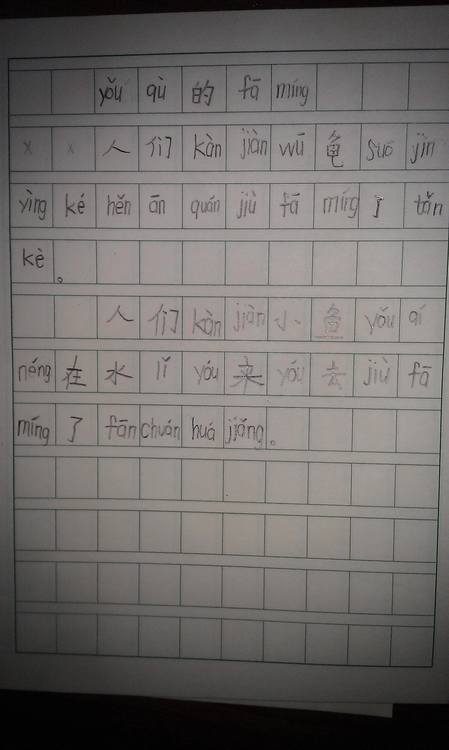 yǒu qù 的 fā míng
× × 人 们 kàn jiàn wū 龟 suō jìn
yìng ké hěn ān quán jiù fā míng 了 tǎn
kè 。
人 们 kàn jiàn 小 鱼 yóu qí
néng 在 水 lǐ yóu 来 yóu 去 jiù fā
míng 了 fān chuán huá jiǎng 。